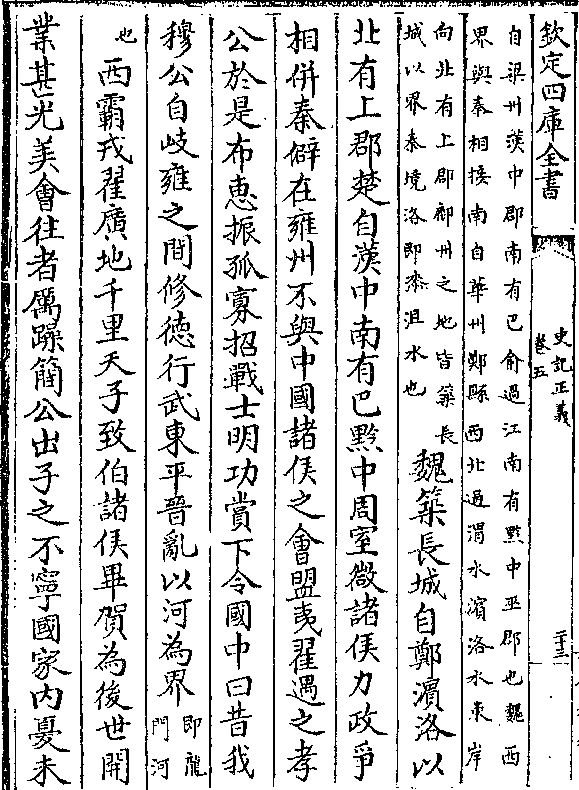 欽定四庫全書
史記正義
卷五
二十三
自梁州漢中郡南有巴俞過江南有黔中巫郡也魏西
界與秦相接南自華州鄭縣西北過渭水濱洛水東岸
向北有上郡鄜州之地皆築長
城以界秦境洛即漆沮水也
魏築長城自鄭濱洛以
北有上郡楚自漢中南有巴黔中周室微諸侯力政爭
相併秦僻在雍州不與中國諸侯之會盟夷翟遇之孝
公於是布惠振孤寡招戰士明功賞下令國中曰昔我
穆公自岐雍之間修德行武東平晉亂以河為界
即龍
門河
也
西霸戎翟廣地千里天子致伯諸侯畢賀為後世開
業甚光美會往者厲躁簡公出子之不寧國家內憂未